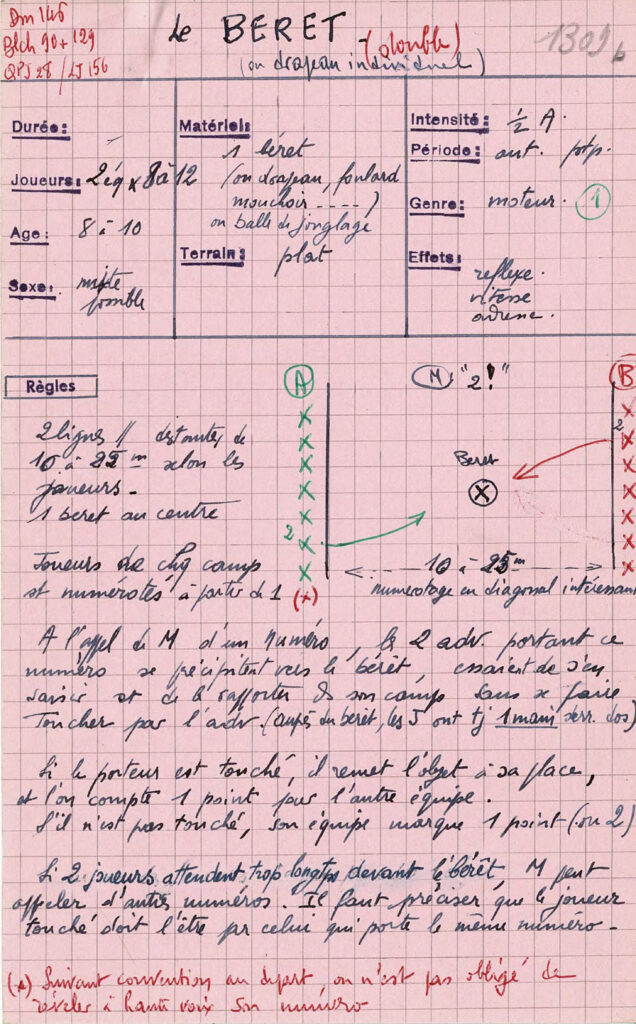 Dm 146
Blch 90 + 129
QPJ 28 / LJ 156
Le BERET - (double)
(ou drapeau individuel)
1309 b
Durée:
Joueurs: 2 éq x 8 à 12
Age: 8 à 10
Sexe: mixte
possible
Matériel:
1 béret
(ou drapeau, foulard
mouchoir ----)
ou balle de jonglage
Terrain: plat
Intensité: ½ A.
Période: aut. ptp.
Genre: moteur. 1
Effets:
reflexe.
vitesse
adresse.
Règles
A
M "2!"
B
2 lignes // distantes de
10 à 25 m selon les
joueurs -
1 beret au centre
Beret
2
2
Joueurs de chq camp
st numérotés à partir de 1 (*)
10 à 25 m
numerotage en diagonal intéressant
A l'appel de M d'un numéro, les 2 adv. portant ce
numéro se précipitent vers le béret, essaient de s'en
saisir et de le rapporter ds son camp sans se faire
toucher par l'adv. (auprès du beret, les J ont tj 1 main derr. dos)
Si le porteur est touché, il remet l'objet à sa place,
et l'on compte 1 point pour l'autre équipe.
S'il n'est pas touché, son équipe marque 1 point (ou 2)
Si 2 joueurs attendent trop longtps devant le bérêt, M peut
appeler d'autres numéros. Il faut préciser que le joueur
touché doit l'être par celui qui porte le même numéro -
(*) Suivant convention au départ, on n'est pas obligé de
révéler à haute voix son numéro